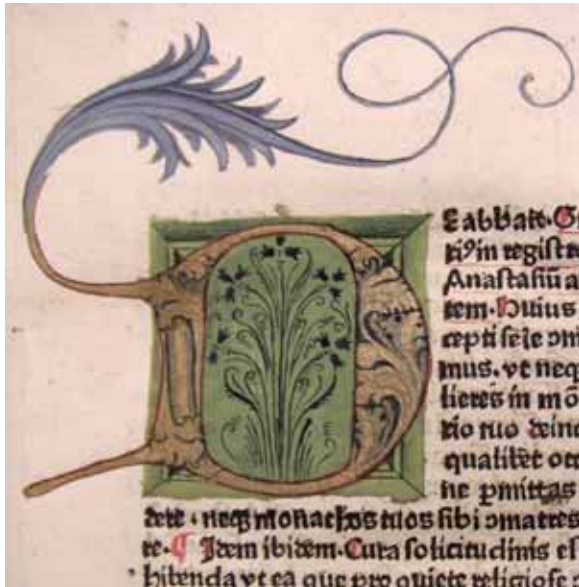 E abbate. Gr
ri9 in regiſtr
Anaſtaſiū a
tem. Huius
cepti ſēꝑ ɔm
mus. vt neq
lieres in mō
rio tuo dein
qualibet occ
ne ꝑmittas
dere. neqꝫ monachos tuos ſibi ɔmatres
re. ¶ Idem ibidem. Cura ſolicitudinis eſ
hibenda vt ea que pro quiete religioſe